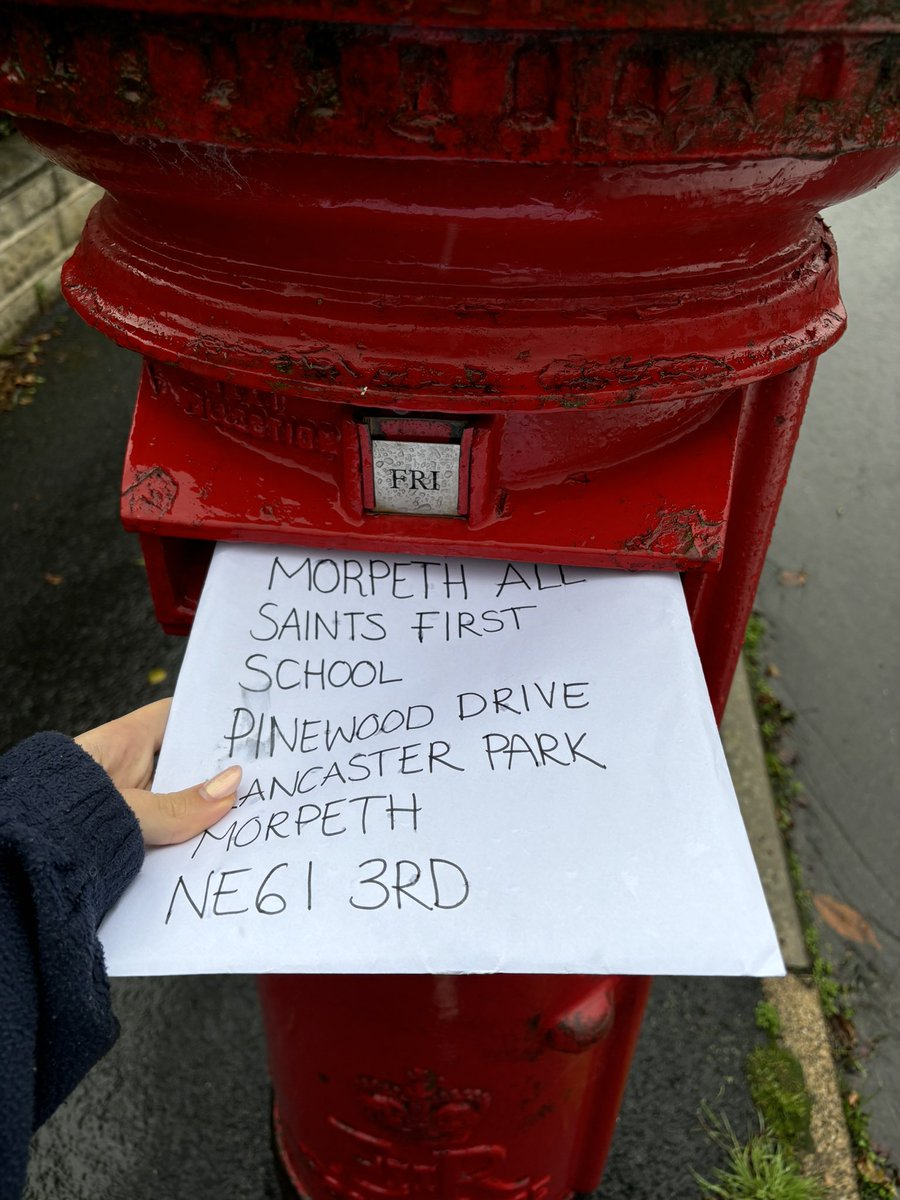 FRI
MORPETH ALL
SAINTS FIRST
SCHOOL
PINEWOOD DRIVE
LANCASTER PARK
MORPETH
NE61 3RD